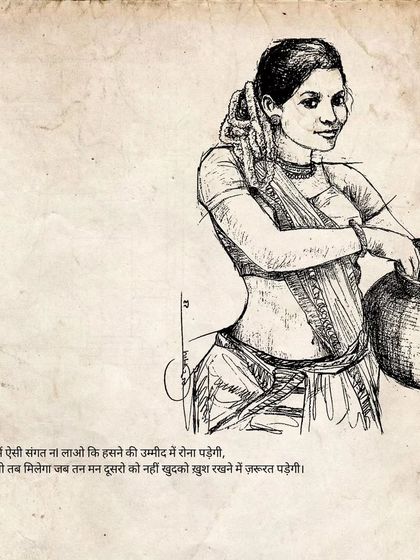 ऐसी संगत ना लाओ कि हसने की उम्मीद में रोना पड़ेगी,
तब मिलेगा जब तन मन दूसरो को नहीं खुदको ख़ुश रखने में ज़रूरत पड़ेगी।